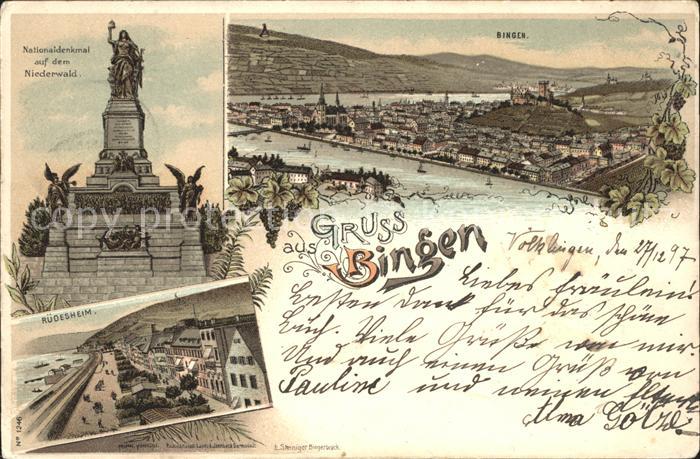 Nationaldenkmal
auf dem
Niederwald.
BINGEN.
copy protection
GRUSS
aus Bingen
Völklingen, den 27/12 97
Liebes Fräulein!
Besten Dank für das schöne
Buch. Viele Grüße von mir
Und auch einen Grüß von
Pauline und meinen Eltern
Alma Götze
RÜDESHEIM.
Nº 1246
E. Steiniger Bingerbrück.